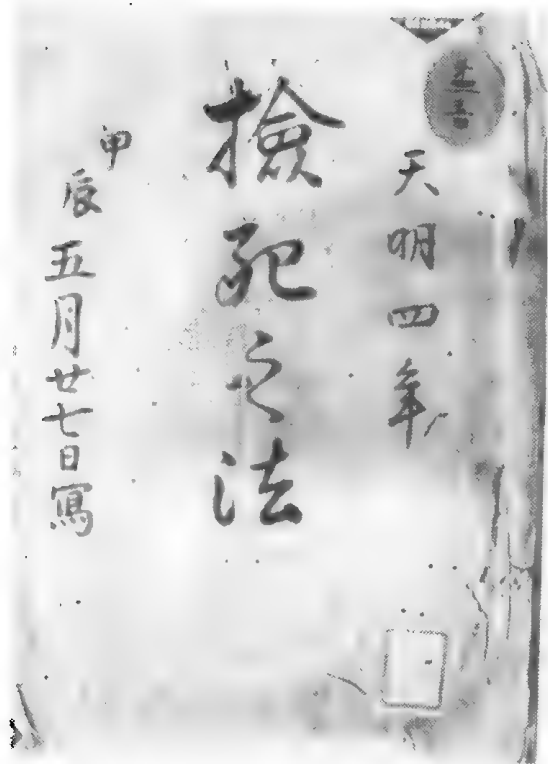 天明四年
撿死之法
甲辰五月廿七日寫